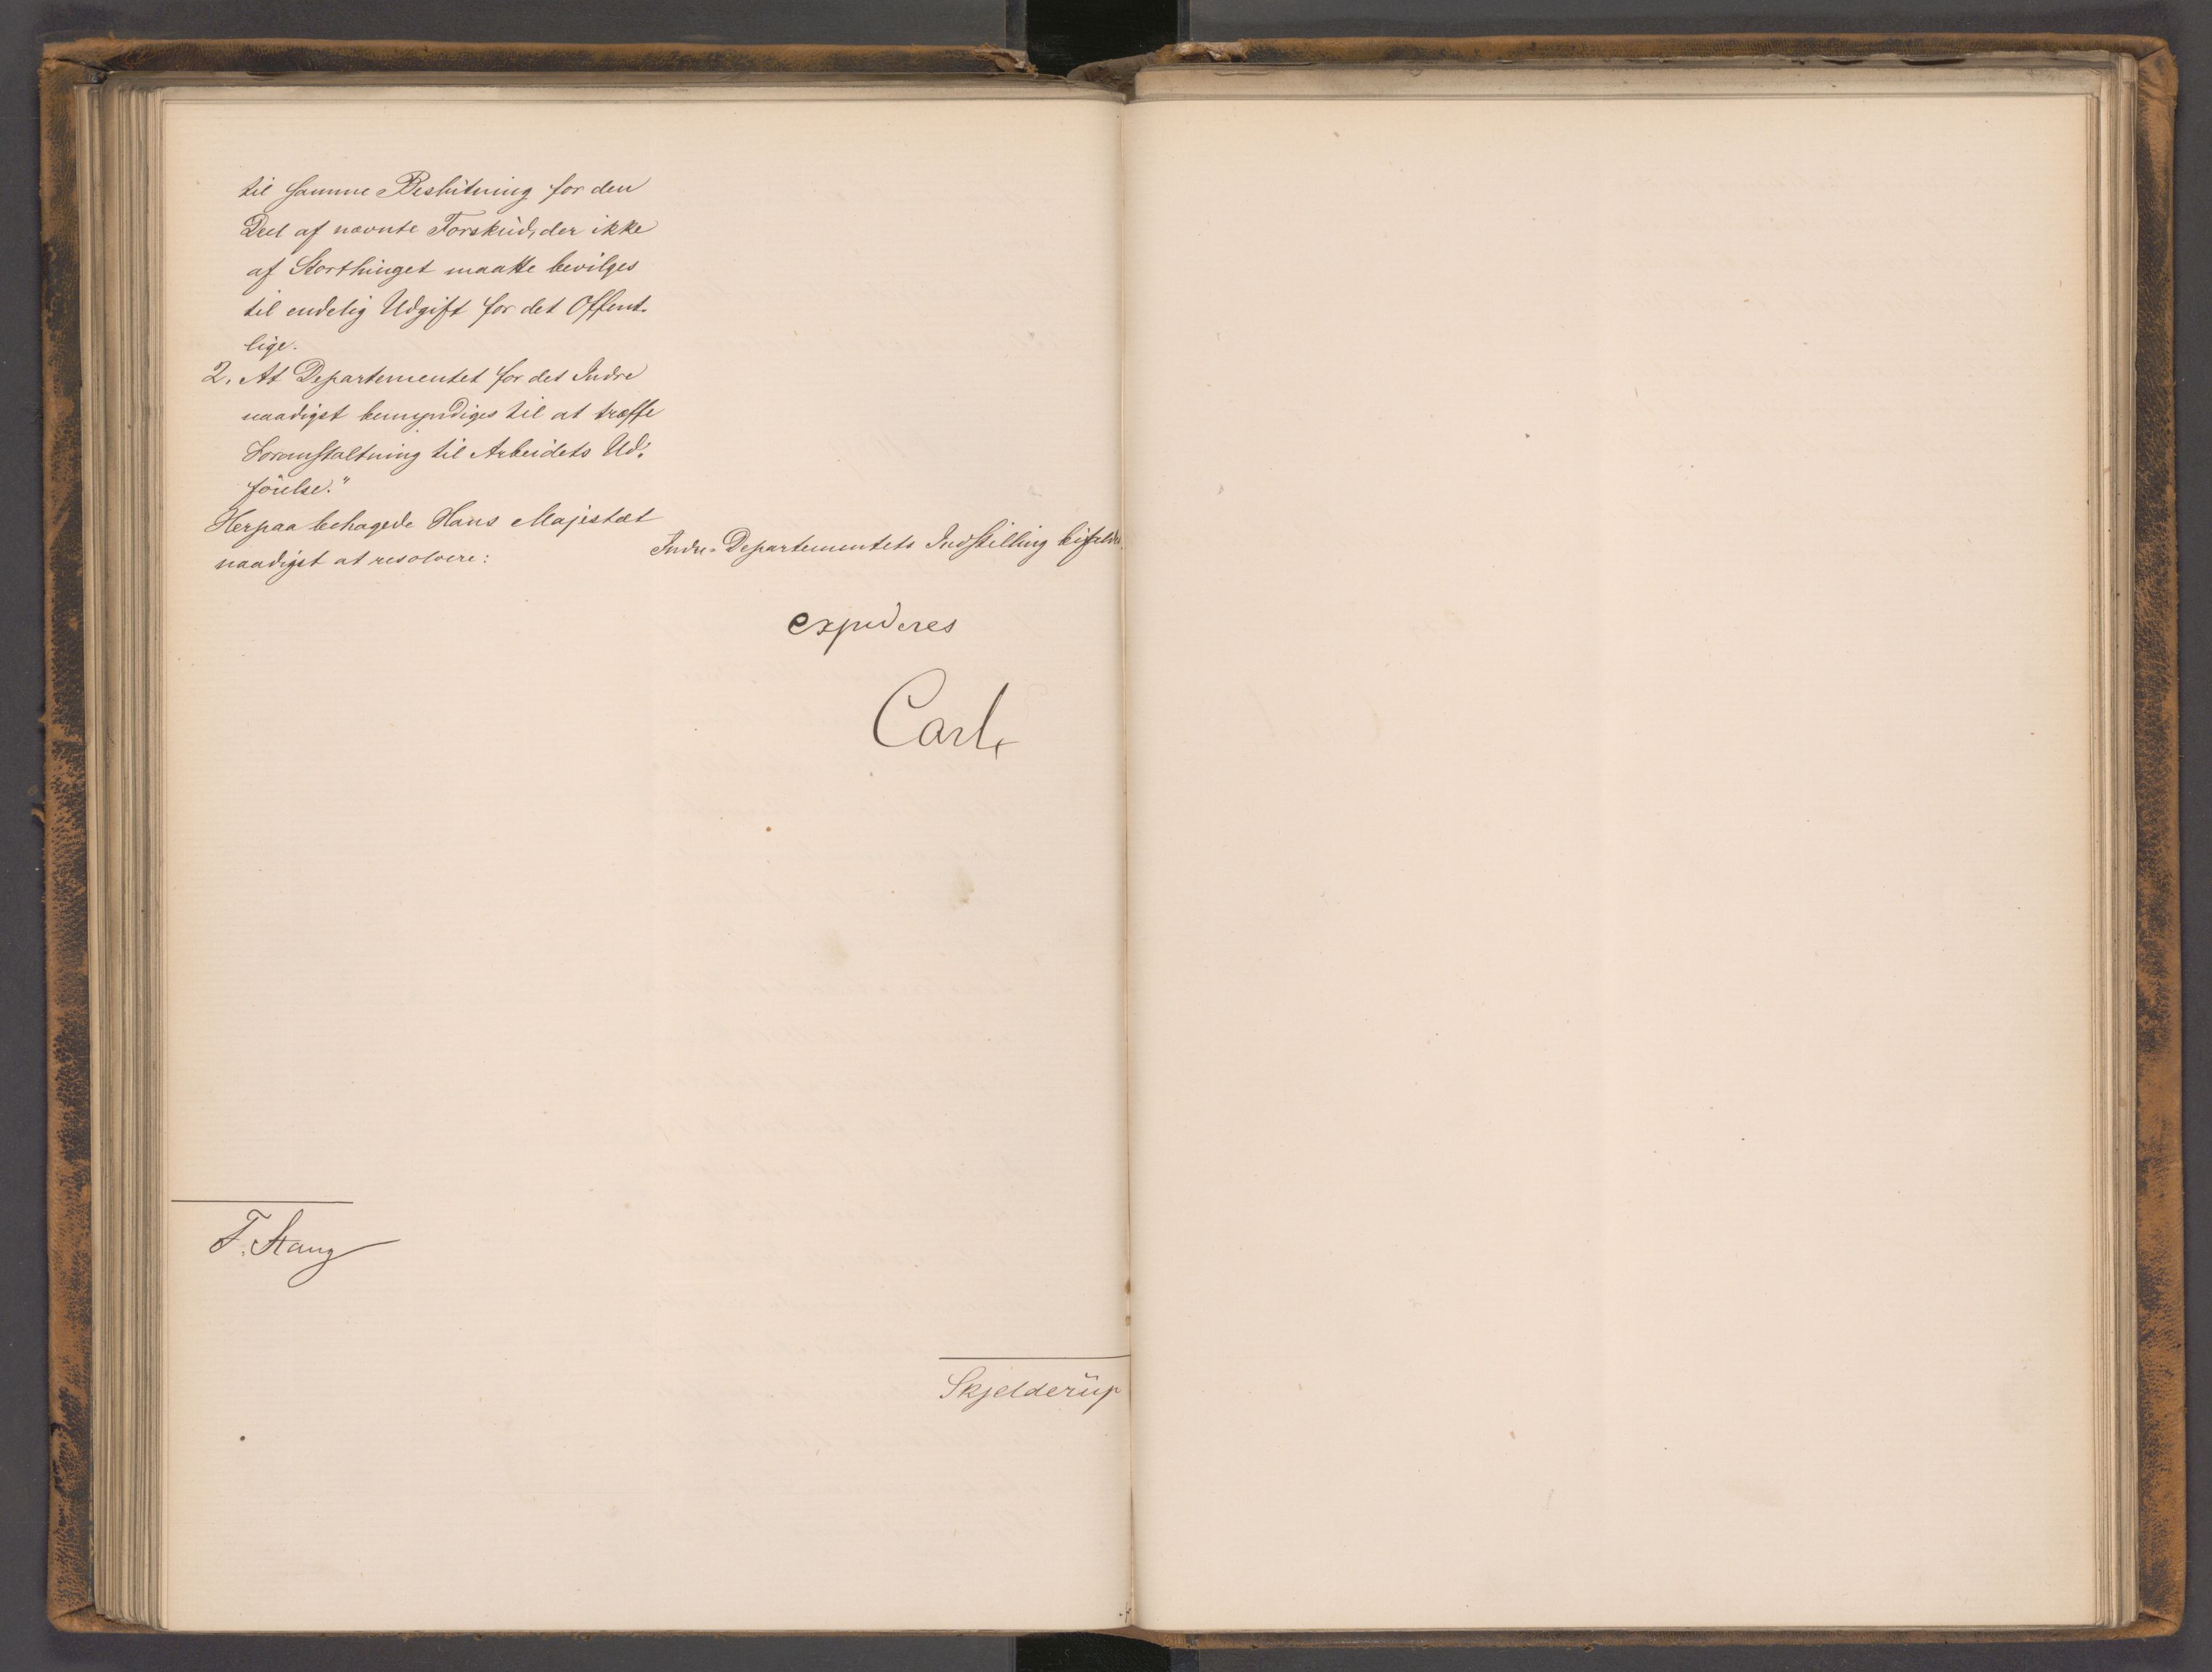 til samme Beslutning for den
Deel af nævnte Forskud, der ikke
af Storthinget maatte bevilges
til endelig Udgift for det Offent-
lige.
2. At Departementet for det Indre
naadigst bemyndiges til at træffe
Foranstaltning til Arbeidets Ud-
førelse."
Herpaa behagede Hans Majestæt
naadigst at resolvere:
Indre-Departementets Indstilling bifaldes
expederes
Carl
F. Stang
Skjelderup